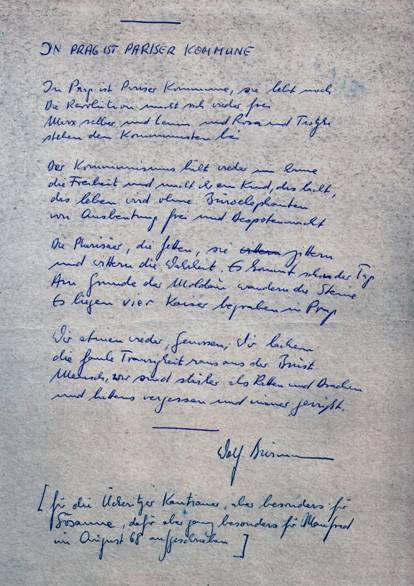 IN PRAG IST PARISER KOMMUNE
In Prag ist Pariser Kommune, sie lebt noch
Die Revolution macht sich wieder frei
Marx selber und Lenin und Rosa und Trotzki
stehen den Kommunisten bei
Der Kommunismus hält wieder im Arme
die Freiheit und macht ihr ein Kind, das lacht,
das Leben wird ohne Büroelephanten
von Ausbeutung frei und Despotenmacht
Die Pharisäer, die fetten, sie zittern
und wittern die Wahrheit. Es kommt schon der Tag
Am Grunde der Moldau wandern die Steine
Es liegen vier Kaiser begraben in Prag
Wir atmen wieder, Genossen, Wir lachen
die faule Traurigkeit raus aus der Brust
Mensch, wir sind stärker als Ratten und Drachen
und hattens vergessen und immer gewußt.
Wolf Biermann
[für die Ückeritzer aber besonders für
Susanne, dafür aber ganz besonders für Manfred
im August 68 aufgeschrieben]